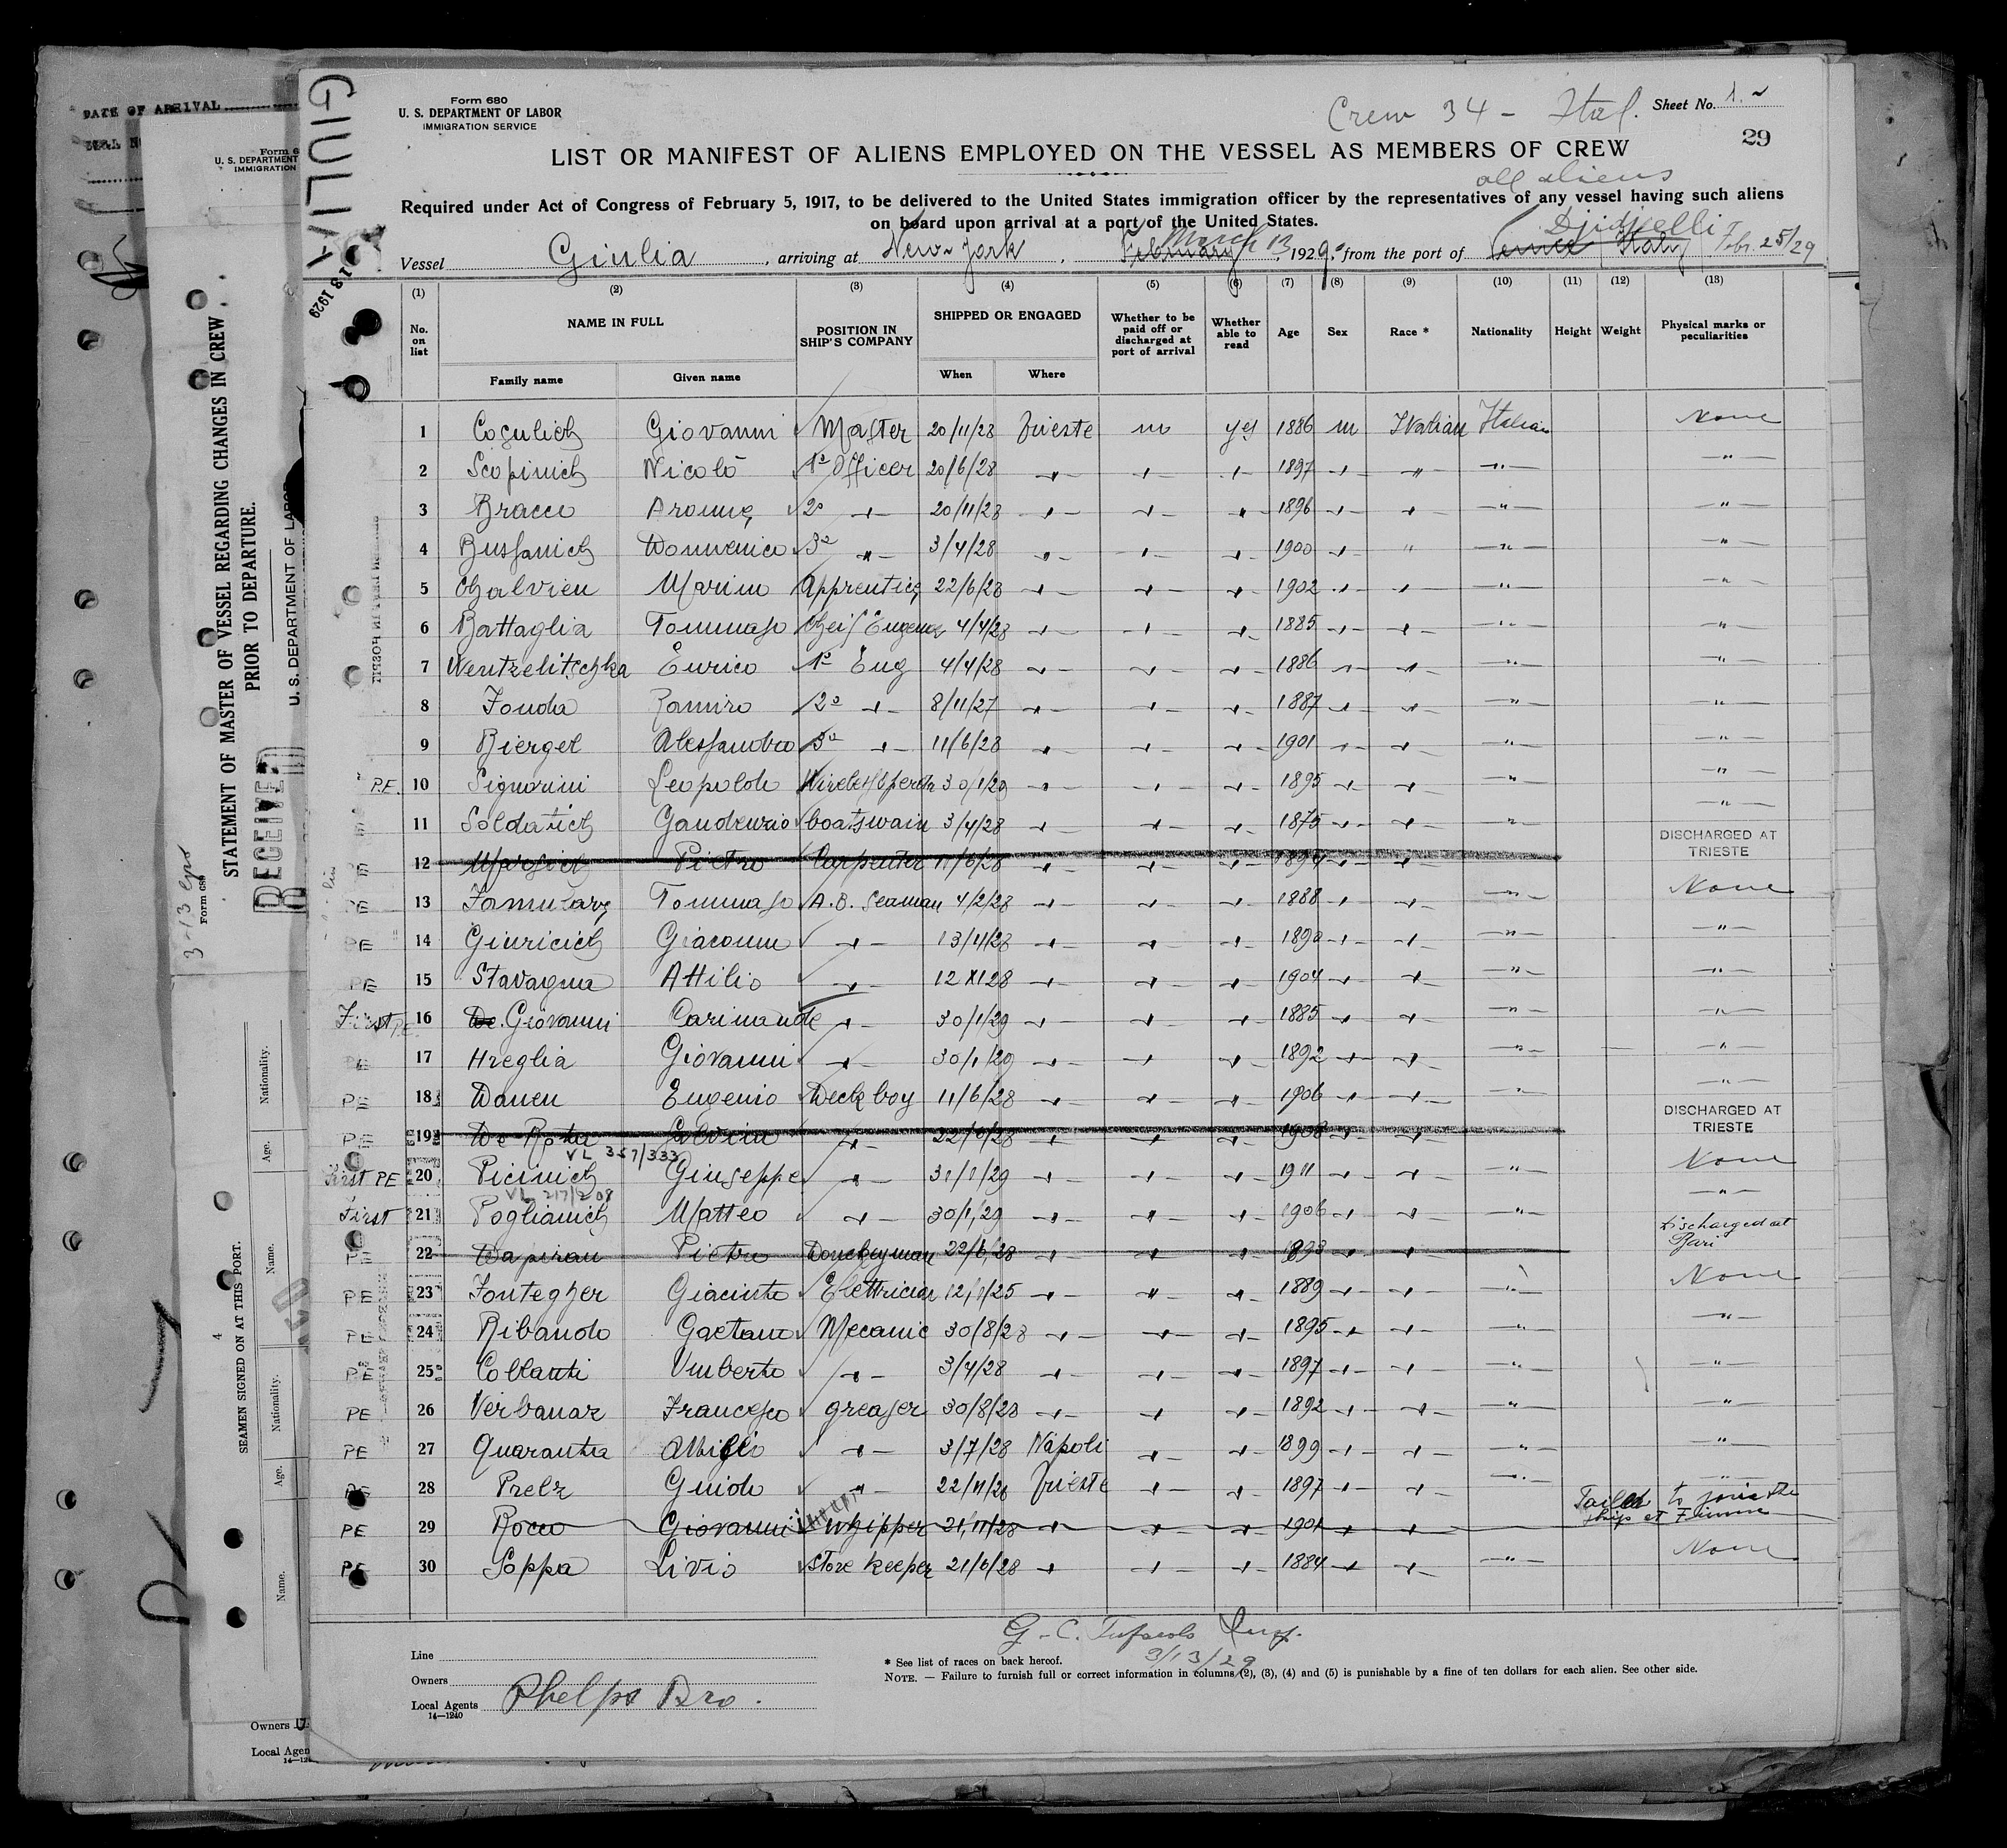 DATE OF ARRIVAL
Form 6
U. S. DEPARTMENT
IMMIGRATION
STATEMENT OF MASTER OF VESSEL REGARDING CHANGES IN CREW
PRIOR TO DEPARTURE.
U. S. DEPARTMENT OF LABOR
RECEIVED
Form 689
SEAMEN SIGNED ON AT THIS PORT.
Nationality.
Age.
Name.
Nationality.
Age.
Name.
Owners
Local Agen
GIULIA
13 1929
Form 680
U. S. DEPARTMENT OF LABOR
IMMIGRATION SERVICE
Crew 34 - Ital.
Sheet No. 1.
29
LIST OR MANIFEST OF ALIENS EMPLOYED ON THE VESSEL AS MEMBERS OF CREW
all aliens
Required under Act of Congress of February 5, 1917, to be delivered to the United States immigration officer by the representatives of any vessel having such aliens
on board upon arrival at a port of the United States.
Djidjelli
Vessel Giulia, arriving at New-York, February March 13, 1929, from the port of Italy Febr. 25/29
(1) (2) (3) (4) (5) (6) (7) (8) (9) (10) (11) (12) (13)
No. on list NAME IN FULL POSITION IN SHIP'S COMPANY SHIPPED OR ENGAGED Whether to be paid off or discharged at port of arrival Whether able to read Age Sex Race * Nationality Height Weight Physical marks or peculiarities
Family name Given name When Where
1 Cosulich Giovanni Master 20/11/28 Trieste no yes 1886 m Italian Italian None
2 Scopinich Nicolò 1º Officer 20/6/28 " " " 1897 " " " "
3 Bracco Aronne 2º " 20/11/28 " " " 1896 " " " "
4 Bussanich Domenico 3º " 3/4/28 " " " 1900 " " " "
5 Chalvien Marino Apprentice 22/6/28 " " " 1902 " " " "
6 Battaglia Tommaso Cheif Engener 4/4/28 " " " 1885 " " " "
7 Wentzelitschka Enrico 1º Eng 4/4/28 " " " 1886 " " " "
8 Fonda Ramiro 2º " 8/11/27 " " " 1887 " " " "
9 Bierget Alessandro 3º " 11/6/28 " " " 1901 " " " "
P.E. 10 Signorini Leopoldo Wireless Operator 30/1/29 " " " 1895 " " " "
11 Soldatich Gaudenzio boatswain 3/4/28 " " " 1875 " " " "
PE 12 Marsich Pietro Carpenter 11/6/28 " " " 1894 " " DISCHARGED AT TRIESTE
PE 13 Famulary Tommaso A.B. Seaman 4/2/28 " " " 1888 " " " None
PE 14 Giuricich Giacomo " 13/4/28 " " " 1890 " " " "
PE 15 Stavagna Attilio " 12 XI 28 " " " 1904 " " " "
First PE 16 De Giovanni Carimando " 30/1/29 " " " 1885 " " " "
PE 17 Hreglia Giovanni " 30/1/29 " " " 1892 " " " "
PE 18 Daneu Eugenio Deck boy 11/6/28 " " " 1906 " " " "
PE 19 De Rota Salvino " 22/6/28 " " " 1908 " " DISCHARGED AT TRIESTE
VL 357/333
First PE 20 Picinich Giuseppe " 31/1/29 " " " 1911 " " " None
VL 217/208
First 21 Poglianich Matteo " 30/1/29 " " " 1906 " " " "
PE 22 Dapiran Pietro Donckeyman 22/6/28 " " " 1893 " " Discharged at Bari
PE 23 Fontegher Giacinto Elettrician 12/1/25 " " " 1889 " " " None
PE 24 Ribaudo Gaetano Mecanic 30/8/28 " " " 1895 " " " "
PE 25 Collanti Umberto " 3/4/28 " " " 1897 " " " "
PE 26 Verbanaz Francesco greaser 30/8/28 " " " 1892 " " " "
PE 27 Quaranta Attilio " 3/7/28 Napoli " " 1899 " " " "
PE 28 Prelz Guido " 22/11/28 Trieste " " 1897 " " " "
PE 29 Rocco Giovanni Whipper 21/11/28 " " " 1901 " " Failed to join the ship at Fiume
PE 30 Poppa Livio store keeper 21/6/28 " " " 1884 " " " None
Line
Owners
Local Agents Phelps Bro.
14—1240
3/13/29
* See list of races on back hereof.
NOTE. — Failure to furnish full or correct information in columns (2), (3), (4) and (5) is punishable by a fine of ten dollars for each alien. See other side.